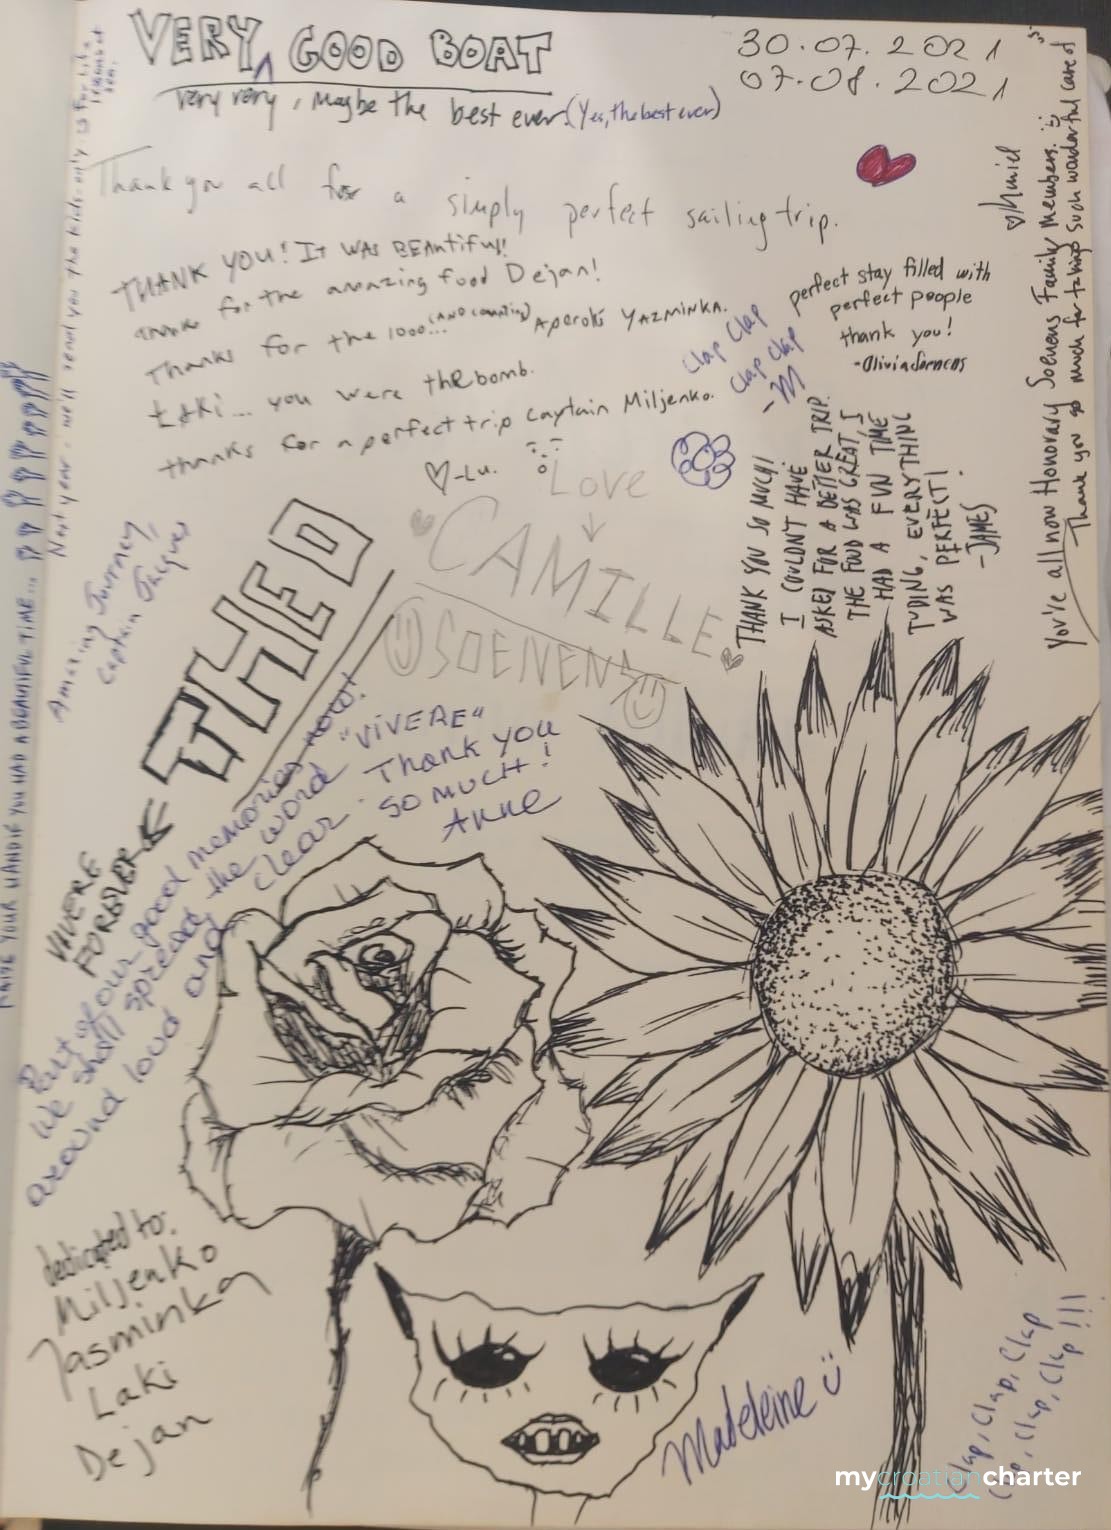 VERY GOOD BOAT
very very, Maybe the best ever (Yes, the best ever)
30.07.2021
07.08.2021
Thank you all for a simply perfect sailing trip.
THANK YOU! IT WAS BEAutiFul!
for the amazing food Dejan!
Thanks for the 1000... (AND COUNTING) Aperols YAZMINKA.
Laki... you were the bomb.
thanks for a perfect trip Caytain Miljenko.
♡-Lu.
Clap Clap
Clap Clap
-M
perfect stay filled with
perfect people
thank you!
-Olivia Soenens
THANK YOU SO MUCH!
I COULDN'T HAVE
ASKED FOR A BETTER TRIP.
THE FOOD WAS GREAT, I
HAD A FUN TIME
TUBING, EVERYTHING
WAS PERFECT!
-JAMES
You're all now Honorary Soenens Family Members.
Thank you so much for taking such wonderful care of
Love
CAMILLE
SOENENS
Next year, we'll send you the kids only
RAISE YOUR HAND IF YOU HAD A BEAUTIFUL TIME...
Amazing Journey,
Captain Jacques
THEO
VIVERE
FOREVER
Part of our good memories now!
We shall spread the word "VIVERE"
around loud and clear. Thank you
SO MUCH!
Anne
dedicated to:
Miljenko
Jasminka
Laki
Dejan
Madeleine
Clap, Clap, Clap
Clap, Clap, Clap!!!
mycroatiancharter